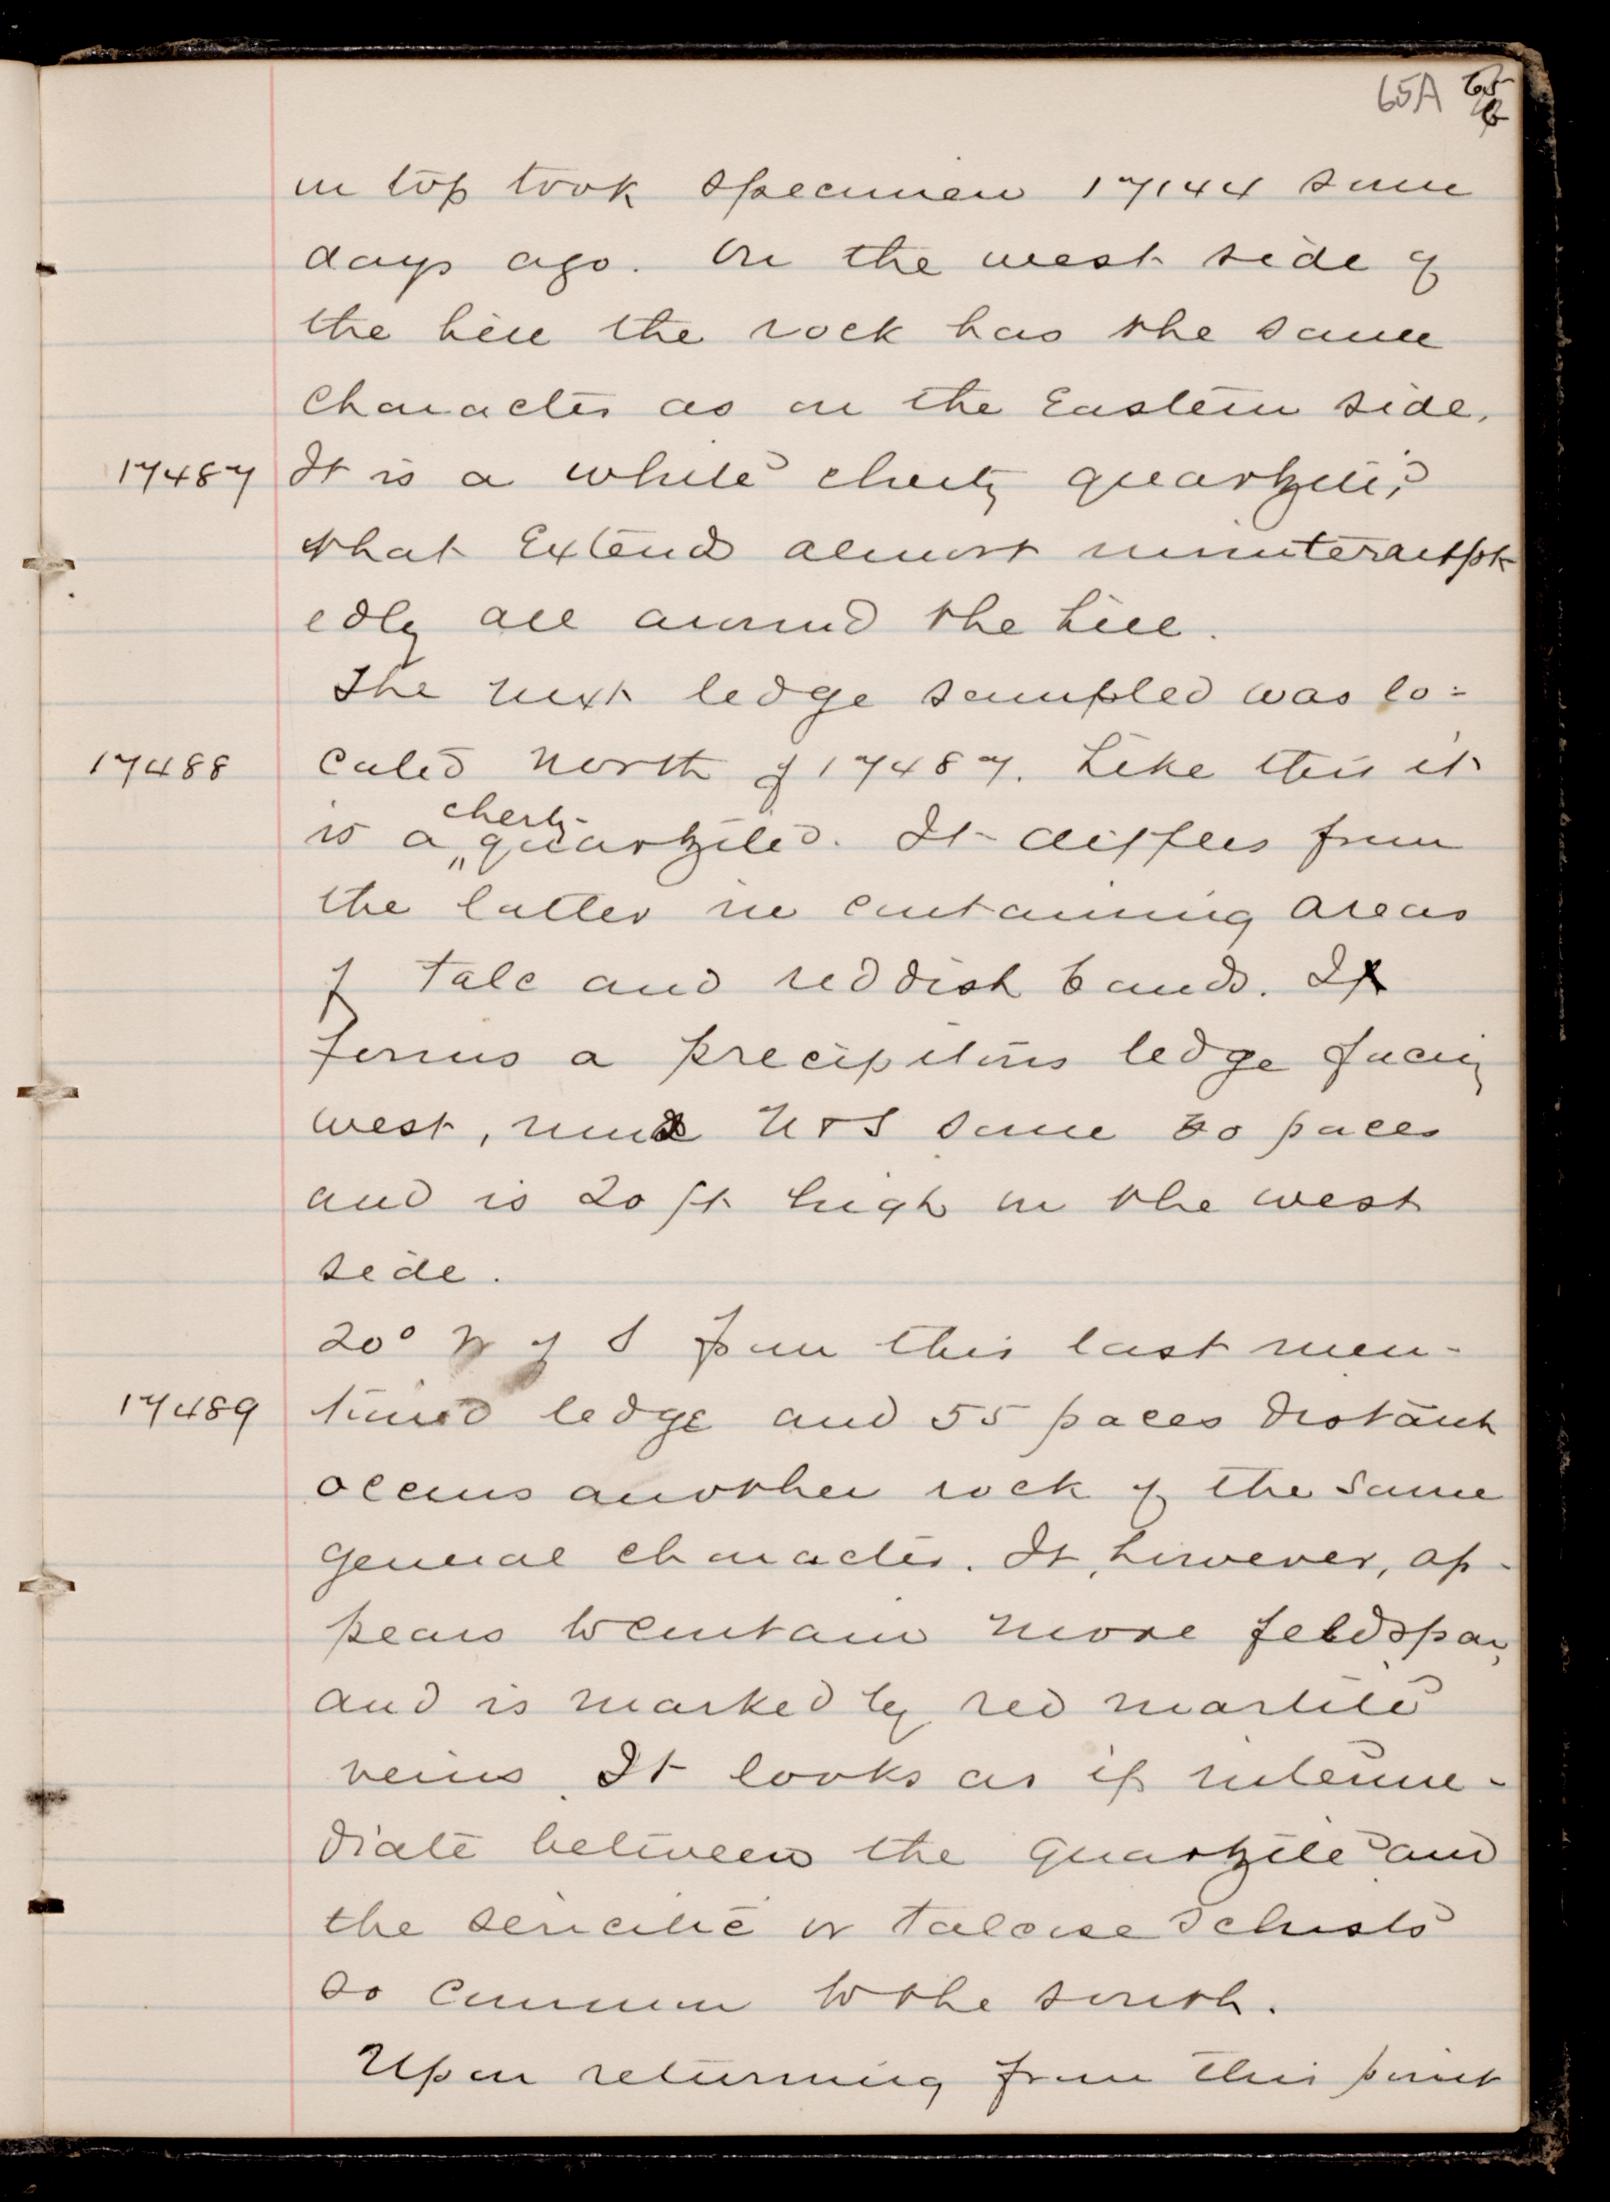 65A
on top took specimen 17144 some
days ago. On the west side of
the hill the rock has the same
character as on the Eastern side.
17487 It is a white cherty quartzite,
that Extends almost uninterrupt
edly all around the hill.
The next ledge sampled was lo-
17488 cated North of 17487. Like this it
is a cherty quartzite. It differs from
the latter in containing areas
of talc and reddish bands. It
forms a precipitous ledge facing
west, runs N & S some 30 paces
and is 20 ft high on the west
side.
20° W of S from this last men-
17489 tioned ledge and 55 paces distant
occurs another rock of the same
general character. It, however, ap-
pears to contain more feldspar,
and is marked by red martite
veins. It looks as if interme-
diate between the quartzite and
the sericitic or talcose schists
so common to the south.
Upon returning from this point